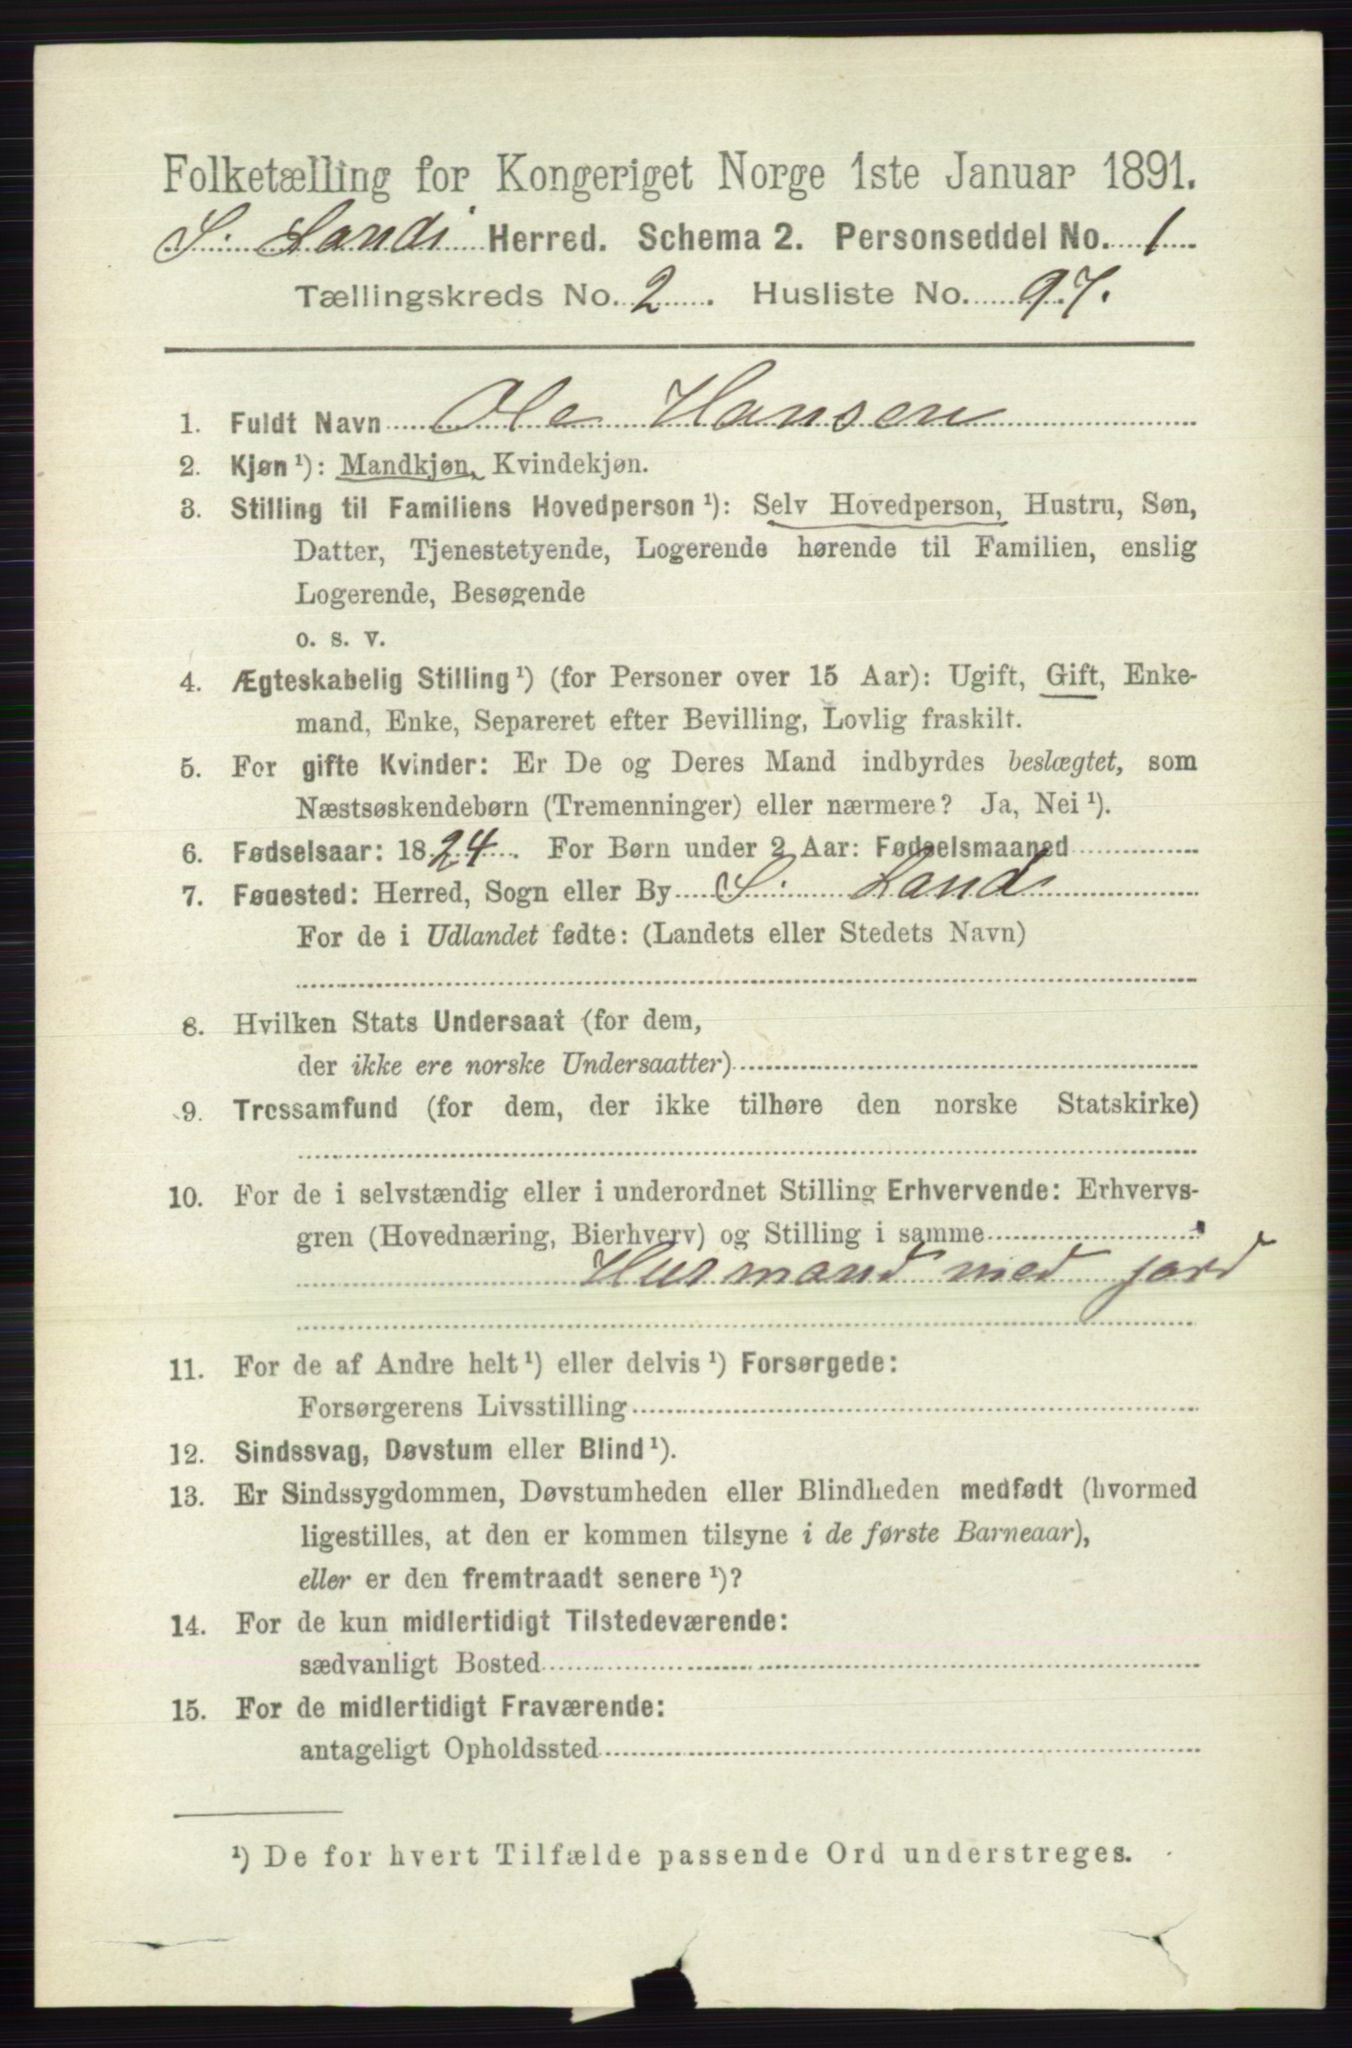 Folketælling for Kongeriget Norge 1ste Januar 1891.
S. Lands Herred. Schema 2. Personseddel No. 1
Tællingskreds No. 2. Husliste No. 97.
1. Fuldt Navn Ole Hansen
2. Kjøn ¹): Mandkjøn, Kvindekjøn.
3. Stilling til Familiens Hovedperson ¹): Selv Hovedperson, Hustru, Søn,
Datter, Tjenestetyende, Logerende hørende til Familien, enslig
Logerende, Besøgende
o. s. v.
4. Ægteskabelig Stilling ¹) (for Personer over 15 Aar): Ugift, Gift, Enke-
mand, Enke, Separeret efter Bevilling, Lovlig fraskilt.
5. For gifte Kvinder: Er De og Deres Mand indbyrdes beslægtet, som
Næstsøskendebørn (Tremenninger) eller nærmere? Ja, Nei ¹).
6. Fødselsaar: 1824. For Børn under 2 Aar: Fødselsmaaned
7. Føuested: Herred, Sogn eller By S. Land
For de i Udlandet fødte: (Landets eller Stedets Navn)
8. Hvilken Stats Undersaat (for dem,
der ikke ere norske Undersaatter)
9. Trossamfund (for dem, der ikke tilhøre den norske Statskirke)
10. For de i selvstændig eller i underordnet Stilling Erhvervende: Erhvervs-
gren (Hovednæring, Bierhverv) og Stilling i samme
Husmand med jord
11. For de af Andre helt ¹) eller delvis ¹) Forsørgede:
Forsørgerens Livsstilling
12. Sindssvag, Døvstum eller Blind ¹).
13. Er Sindssygdommen, Døvstumheden eller Blindheden medfødt (hvormed
ligestilles, at den er kommen tilsyne i de første Barneaar),
eller er den fremtraadt senere ¹)?
14. For de kun midlertidigt Tilstedeværende:
sædvanligt Bosted
15. For de midlertidigt Fraværende:
antageligt Opholdssted
¹) De for hvert Tilfælde passende Ord understreges.